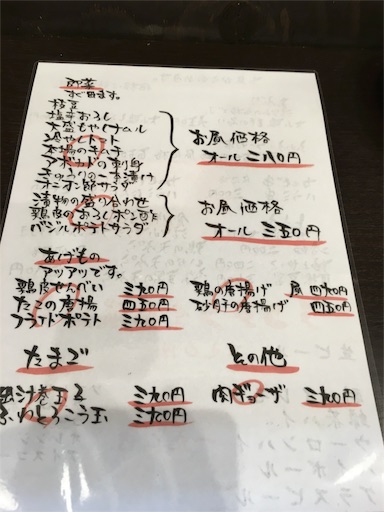 即菜
すぐ出ます。
枝豆
塩辛おろし
大盛もやしナムル
冷やしトマト
本場のキムチ
アボカドの刺身
きゅうりの一本漬け
オニオン部サラダ
お風価格
オール 二八〇円
漬物の盛り合わせ
鶏皮のおろしポン酢
バジルポテトサラダ
お風価格
オール 三五〇円
あげもの
アツアツです。
鶏皮せんべい 三九〇円
たこの唐揚 四五〇円
フライドポテト 三九〇円
鶏の唐揚げ 風 四九〇円
砂肝の唐揚げ 四五〇円
たまご
出汁巻玉子 三九〇円
ふわとろ 玉 三九〇円
その他
肉ギョーザ 三九〇円